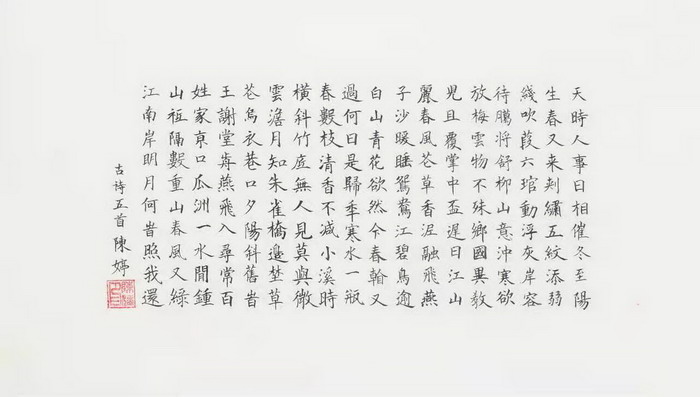 天時人事日相催冬至陽
生春又来刺繡五紋添弱
綫吹葭六琯動浮灰岸容
待臘将舒柳山意沖寒欲
放梅雲物不殊鄉國異教
児且覆掌中盃遲日江山
麗春風芲草香泥融飛燕
子沙暖睡鴛鴦江碧鳥逾
白山青花欲然今春看又
過何日是歸秊寒水一瓶
春數枝清香不减小溪時
橫斜竹底無人見莫與微
雲澹月知朱雀橋邊埜草
芲烏衣巷口夕陽斜舊旹
王謝堂歬燕飛入尋常百
姓家京口瓜洲一水間鍾
山祗隔數重山春風又綠
江南岸明月何旹照我還
古詩五首陳婷